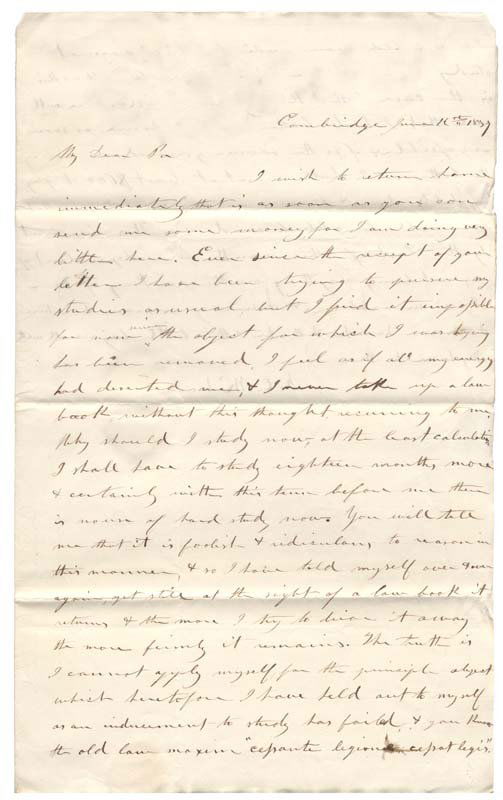 Cambridge June 16th 1839
My Dear Pa
I wish to return home
immediately that is as soon as you can
send me some money for I am doing very
little here. Ever since the receipt of your
letter I have been trying to pursue my
studies as usual but I find it impossible
for now since the object for which I was trying
has been removed, I feel as if all my energy
had deserted me, & I never take up a law
book without this thought recurring to me,
Why should I study now, at the least calculation
I shall have to study eighteen months more
& certainly with this term before me there
is no use of hard study now. You will tell
me that it is foolish & ridiculous to reason in
this manner, & so I have told myself over & over
again, yet still at the sight of a law book it
returns & the more I try to drive it away
the more firmly it remains. The truth is
I cannot apply myself for the principle object
which heretofore I have held out to myself
as an inducement to study has failed, & you know
the old law maxim "cessante legione cessat legis".